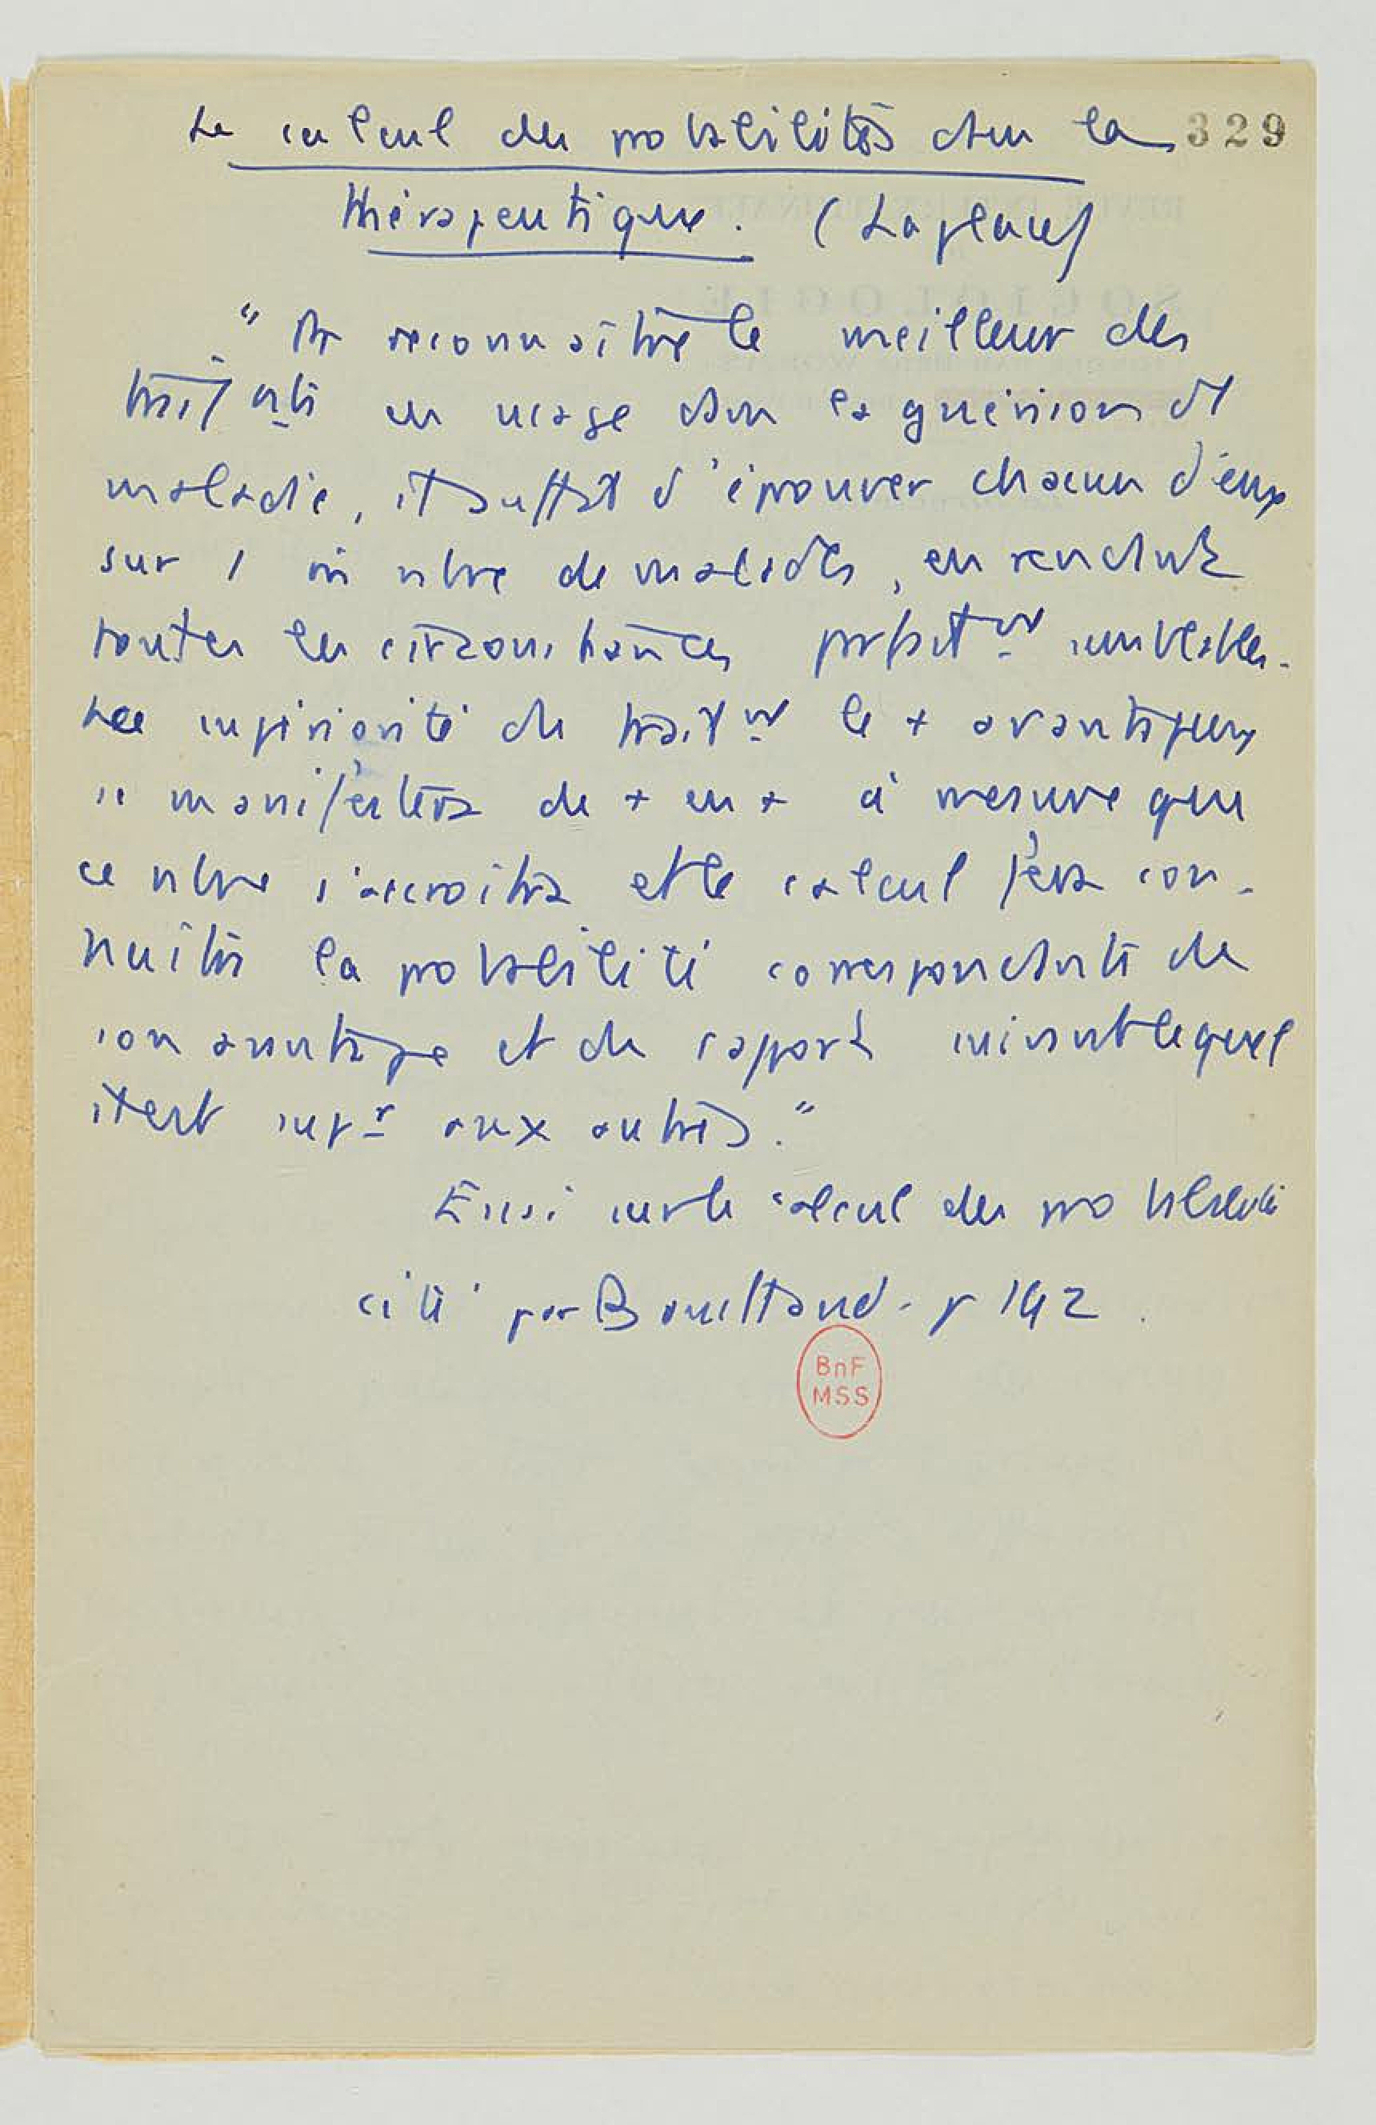 Le calcul des probabilités dans la 329
thérapeutique. (Laplace)
" Pr reconnaître le meilleur des
trait nts en usage dans la guérison d'1
maladie, il suffit d'éprouver chacun d'eux
sur 1 m̂ nbre de malades, en rendant
toutes les circonstances parfait nt semblables.
La supériorité du trait nt le + avantageux
se manifestera de + en + à mesure que
ce nbre s'accroîtra et le calcul fera con-
naître la probabilité correspondante de
son avantage et du rapport suivant lequel
il est supr aux autres."
Essai sur le calcul des probabilités
cité par Bouillaud. p 192.
BnF
MSS